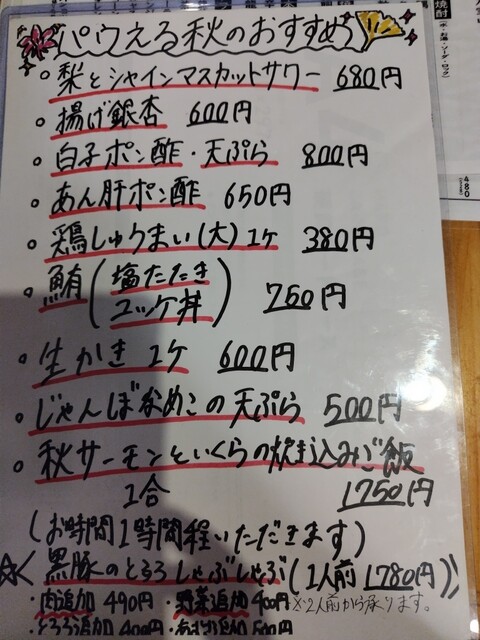 パウえる秋のおすすめ
・梨とシャインマスカットサワー 680円
・揚げ銀杏 600円
・白子ポン酢・天ぷら 800円
・あん肝ポン酢 650円
・鶏しゅうまい(大)1ケ 380円
・鮪(塩たたき
ユッケ丼) 760円
・生かき 1ケ 600円
・じゃんぼなめこの天ぷら 500円
・秋サーモンといくらの炊き込みご飯
1合 1750円
(お時間1時間程いただきます)
☆黒豚のとろろしゃぶしゃぶ(1人前1780円)
・肉追加 490円 ・野菜追加 400円 ※2人前から承ります。
・とろろ追加 400円
焼酎
(水・お湯・ソーダ・ロック)
480